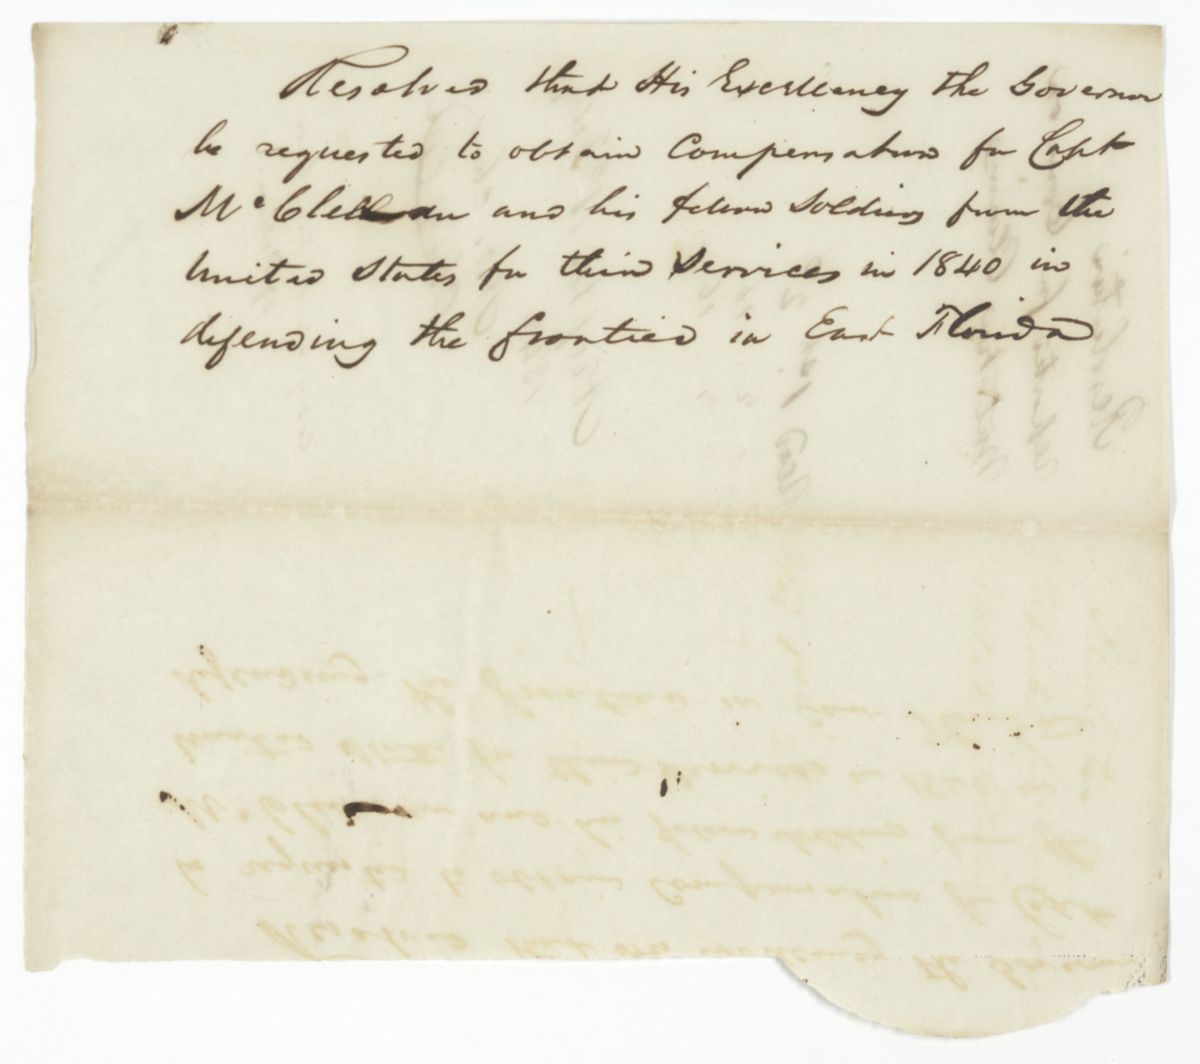 Resolved that His Excellency the Governor
be requested to obtain Compensation for Capt
Mc Clellan and his fellow Soldiers from the
United States for their Services in 1840 in
defending the frontier in East Florida